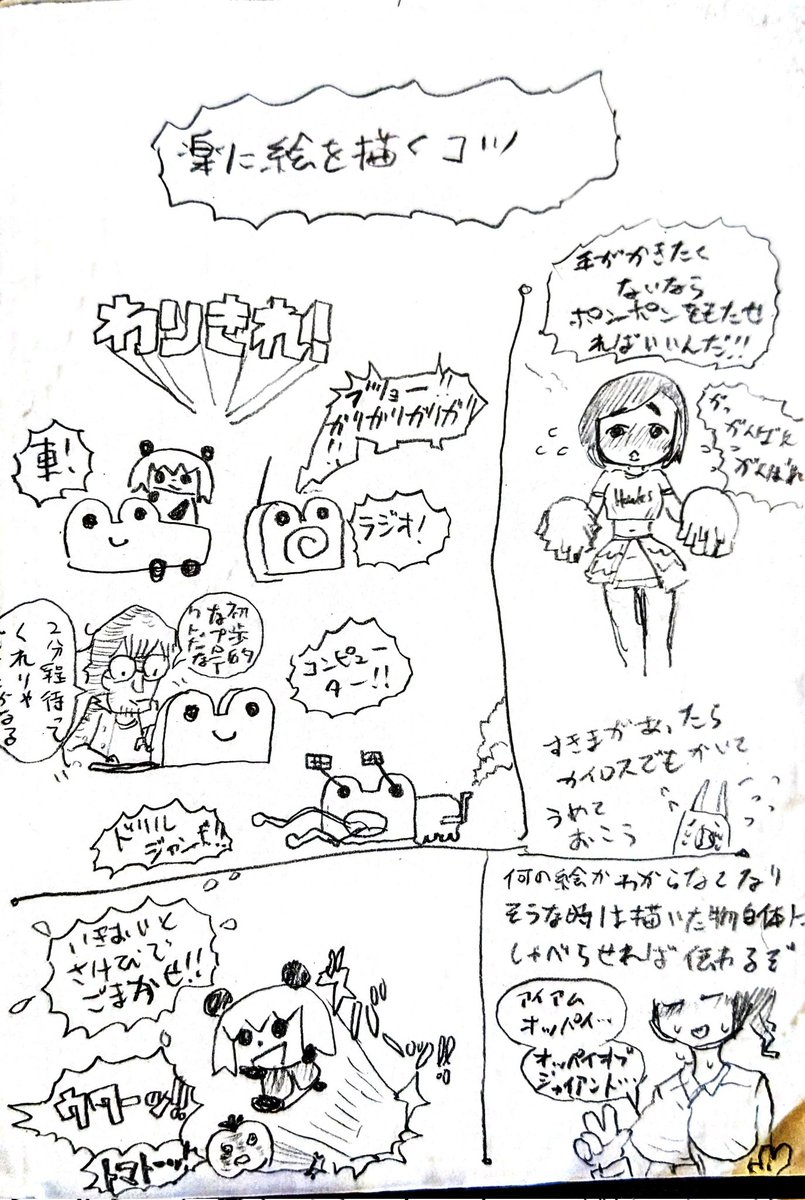 楽に絵を描くコツ
わりきれ!
車!
ブジョー!!
がりがりがりがり
!!
ラジオ!
初歩的
な
2分程待って
くれりゃ
コンピュー
ター!!
ドリル
手がかきたく
ないなら
ポンポンをもたせ
ればいいんだ!!!
がっ
がんばえ
がんばれ
すきまがあったら
カイロスでもかいて
うめて
おこう
いきおいと
さけびで
ごまかせ!!
ウワーッ!!
トマトーッ!
何の絵かわからなくなり
そうな時は描いた物自体に
しゃべらせれば伝わるぞ
アイアム
オッパイ…
オッパイオブ
ジャイアント…